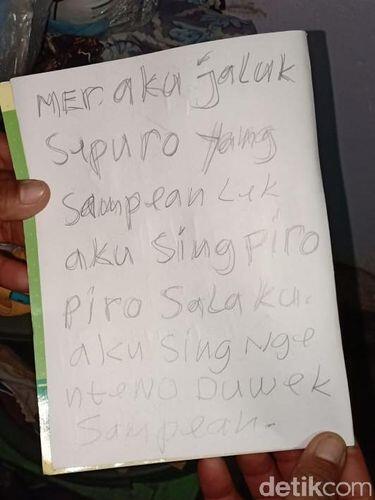 MER. aku jaluk
Sepuro Yang
Sampean Lek
aku Sing piro
piro Salaku.
aku Sing Nge
nteNO Duwek
Sampean.
detikcom